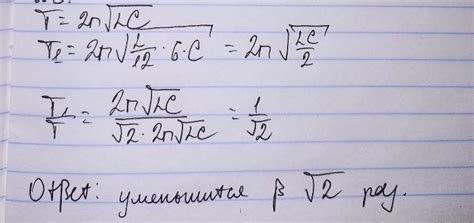 T = 2π√LC
T₁ = 2π√(L/12 · 6 · C) = 2π√(LC/2)
T₁/T = 2π√LC / (√2 · 2π√LC) = 1/√2
Ответ: уменьшится в √2 раз.